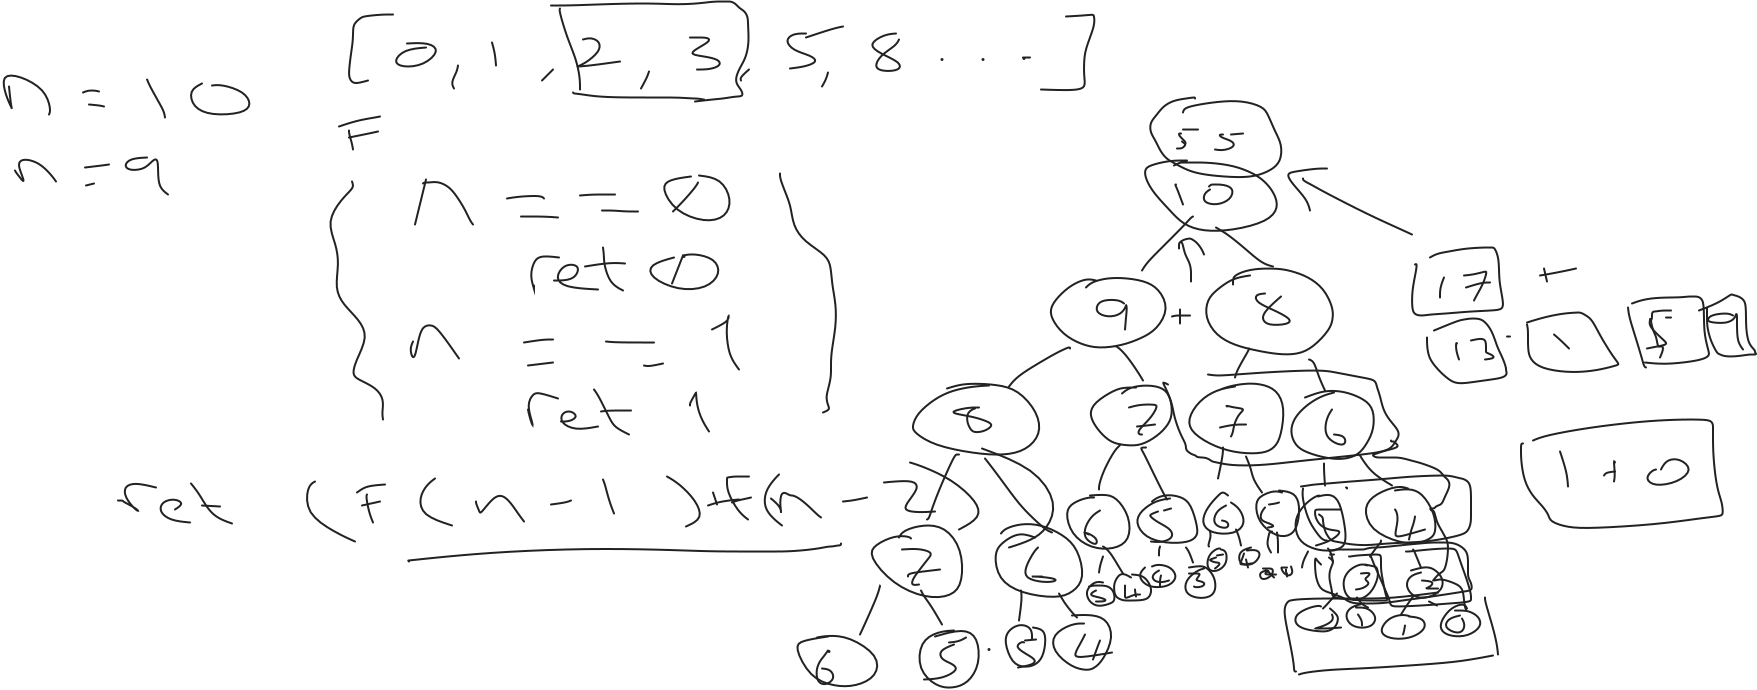 [0, 1, 2, 3, 5, 8 . . . ]
n = 10
n = 9
F
n == 0
ret 0
n == 1
ret 1
ret (F(n-1)+F(n-2)
55
10
9 + 8
8 7 7 6
7 6 6 5 6 5 5 4
6 5 . 5 4 5 4 4 3 5 4 3 2
2 1 1 0
17 +
13 1 5 9
1+0